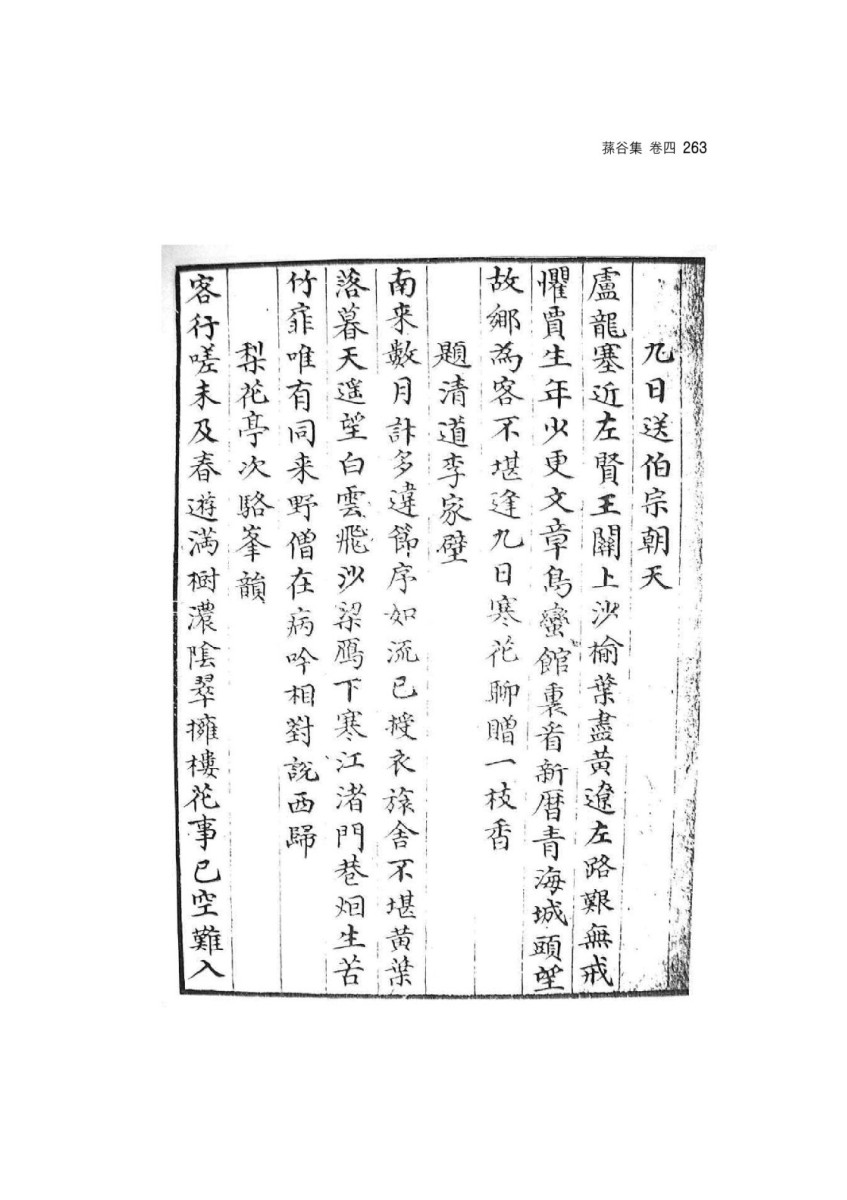 蓀谷集 卷四 263
九日送伯宗朝天
盧龍塞近左賢王關上沙楡葉盡黃遼左路艱無戒
懼賈生年少更文章鳥蠻館裏看新曆青海城頭望
故鄉爲客不堪逢九日寒花聊贈一枝香
題清道李家壁
南來數月計多違節序如流已授衣旅舍不堪黃葉
落暮天遥望白雲飛沙梁鴈下寒江渚門巷烟生苦
竹扉唯有同來野僧在病吟相對說西歸
梨花亭次駱峯韻
客行嗟未及春遊滿樹濃陰翠擁樓花事已空難入